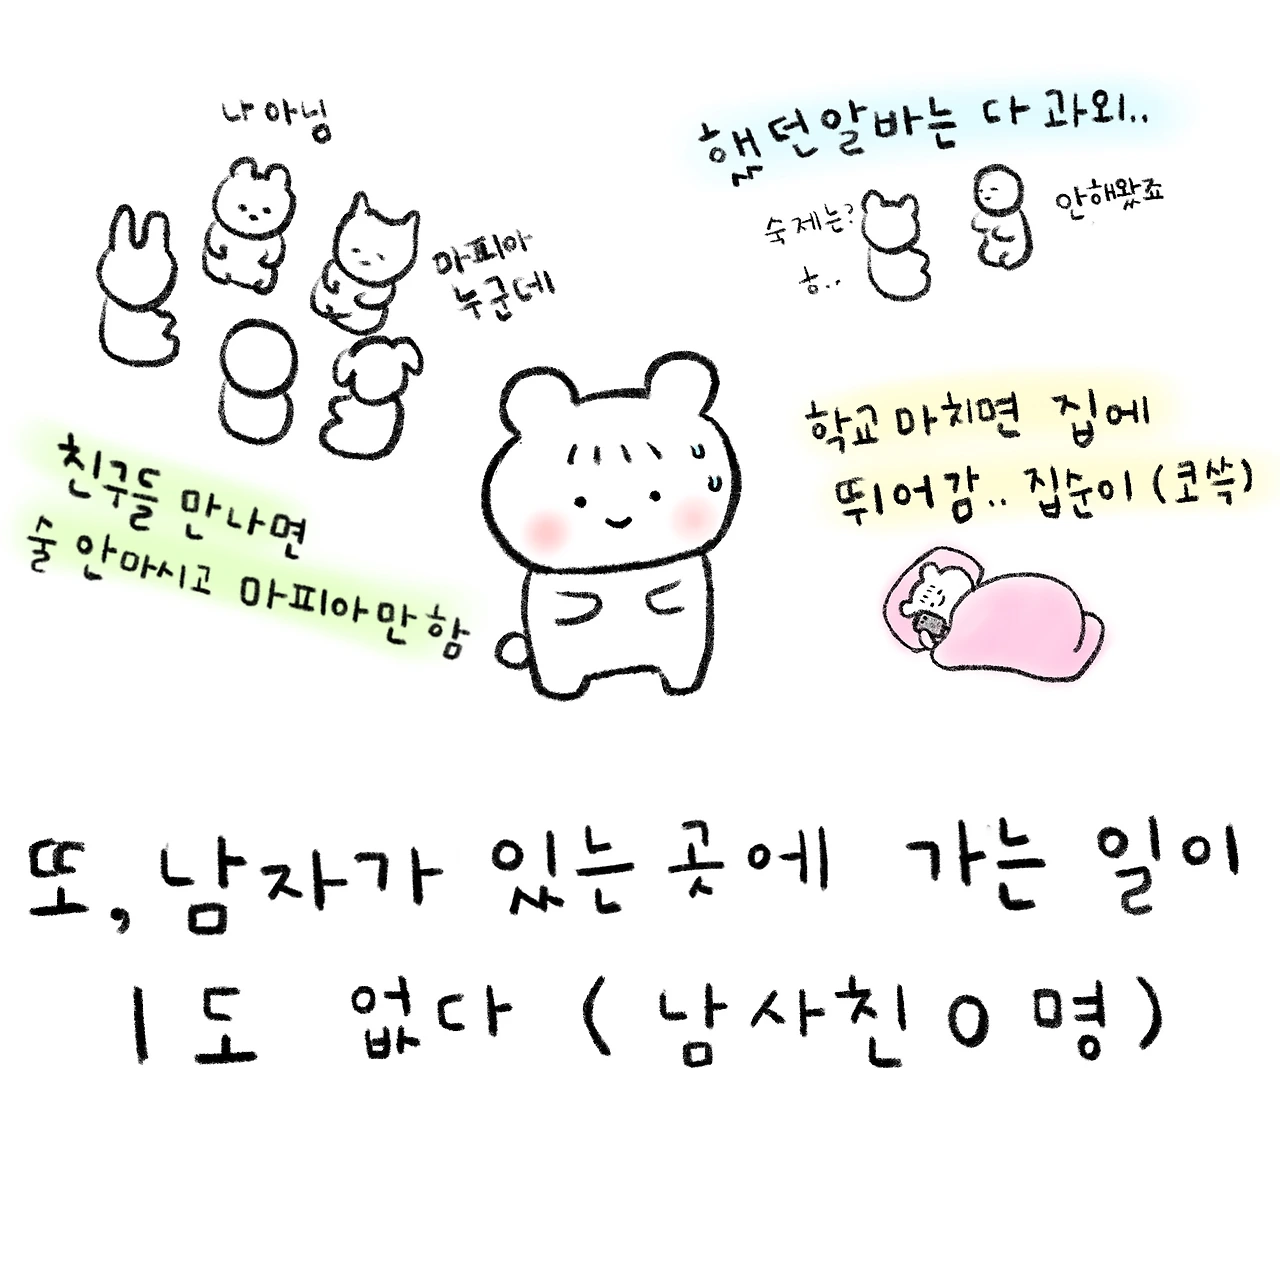 나 아닝
마피아
누군데
친구들 만나면
술 안마시고 마피아만 함
했던알바는 다 과외..
숙제는?
ㅎ..
안해왔죠
학교 마치면 집에
뛰어감.. 집순이 (코쓱)
또, 남자가 있는 곳에 가는 일이
1도 없다 (남사친 0명)